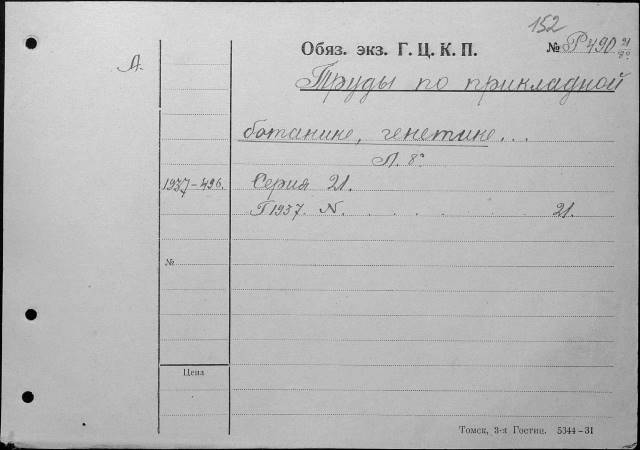 152
Обяз. экз. Г. Ц. К. П. № Р490 21/7°
А.
Труды по прикладной
ботанике, генетике...
Л. 8°
1937-496. Серия 21.
Г 1937. N. . . . . . 21.
№
Цена
Томск, 3-я Гостип. 5344-31